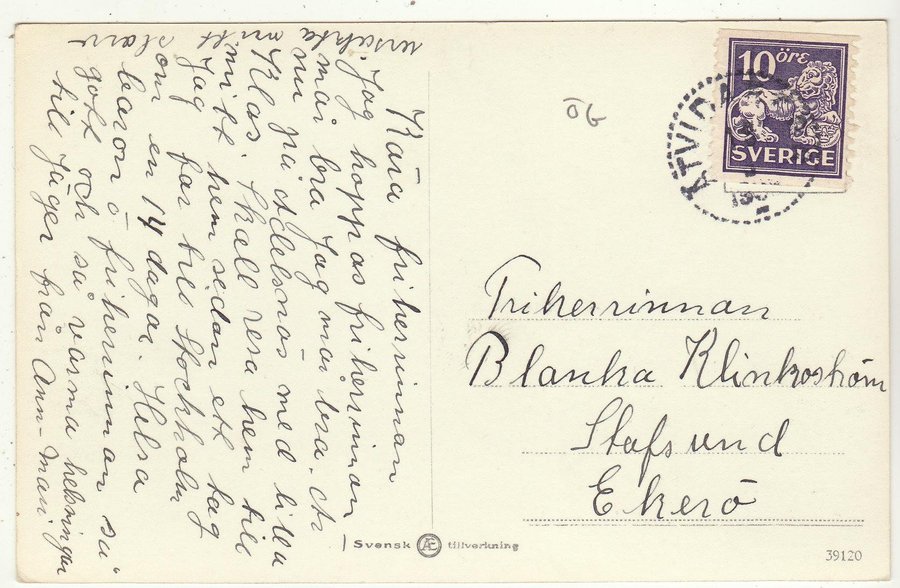 Kära friherrinnan
Jag hoppas friherrinnan
mår bra Jag mår bra. är
nu på Adelsnäs med lilla
Klas. Skall resa hem till
mitt hem sedan ett tag
Jag far till Stockholm
om en 14 dagar. Helsa
baron o friherrinnan så
gott och så varma helsningar
till Jäger från Ann-Mari
ursäkta mitt slarv
10 ÖRE
SVERIGE
ÅTVIDA
Friherrinnan
Blanka Klinkoström
Stafsund
Ekerö
Svensk Æ tillverkning
39120